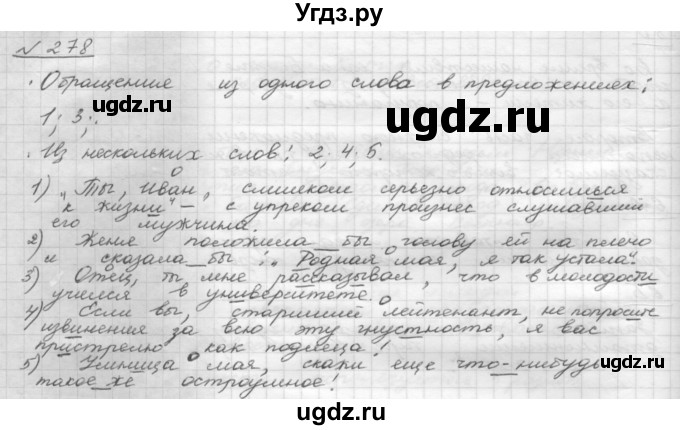 Угдз.ру
№ 278
. Обращения из одного слова в предложениях:
1; 3;.
. Из нескольких слов: 2; 4; 5.
1) „Ты, Иван, слишком серьезно относишься
к жизни" – с упреком произнес слушавший
его мужчина.
2) Женя положила бы голову ей на плечо
и сказала бы: „Родная моя, я так устала".
3) Отец, ты мне рассказывал, что в молодости
учился в университете.
4) Если вы, старший лейтенант, не попросите
извинения за всю эту гнустность, я вас
пристрелю как подлеца!
5) Умница моя, скажи еще что-нибудь
такое же остроумное!
ugdz.ru
ugdz.ru
ugdz.ru
ugdz.ru
ugdz.ru
ugdz.ru
ugdz.ru
ugdz.ru